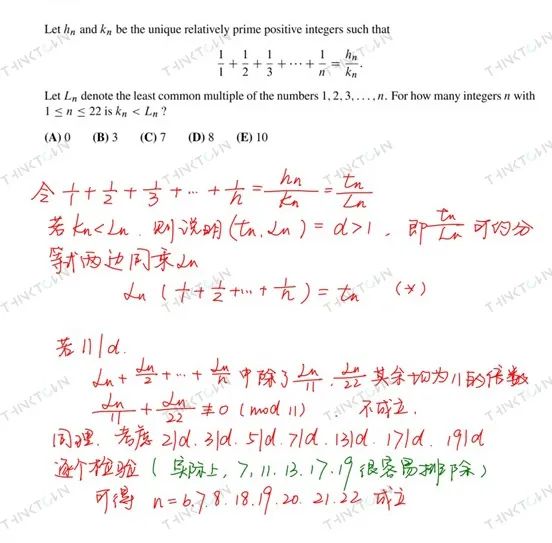 Let hₙ and kₙ be the unique relatively prime positive integers such that
1/1 + 1/2 + 1/3 + ⋯ + 1/n = hₙ/kₙ.
Let Lₙ denote the least common multiple of the numbers 1, 2, 3, . . . , n. For how many integers n with
1 ≤ n ≤ 22 is kₙ < Lₙ ?
(A) 0 (B) 3 (C) 7 (D) 8 (E) 10
令 1/1 + 1/2 + 1/3 + ⋯ + 1/n = hₙ/kₙ = tₙ/Lₙ
若 kₙ<Lₙ. 则说明 (tₙ, Lₙ) = d>1, 即 tₙ/Lₙ 可约分
等式两边同乘 Lₙ
Lₙ ( 1/1 + 1/2 + ⋯ + 1/n ) = tₙ (*)
若 11|d.
Lₙ + Lₙ/2 + ⋯ + Lₙ/n 中除了 Lₙ/11, Lₙ/22 其余均为11的倍数
Lₙ/11 + Lₙ/22 ≢ 0 (mod 11) ∴ 不成立.
同理. 考虑 2|d. 3|d. 5|d. 7|d. 13|d. 17|d. 19|d
逐个检验 ( 实际上, 7, 11. 13. 17. 19 很容易排除 )
可得 n = 6.7.8.18.19.20. 21.22 成立
THINKTOWN